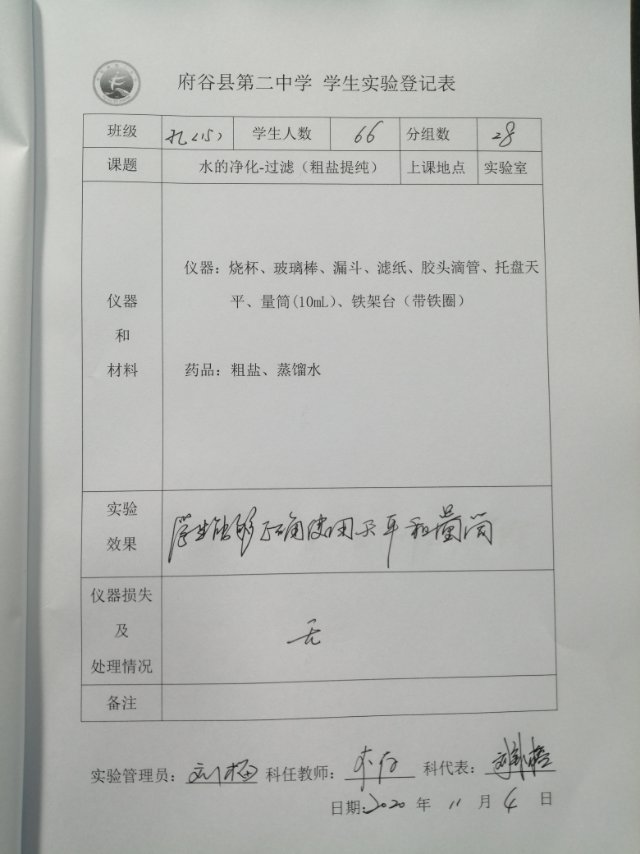 府谷县第二中学 学生实验登记表
班级 九(15) 学生人数 66 分组数 28
课题 水的净化-过滤（粗盐提纯） 上课地点 实验室
仪器：烧杯、玻璃棒、漏斗、滤纸、胶头滴管、托盘天
仪器 平、量筒(10mL)、铁架台（带铁圈）
和
材料 药品：粗盐、蒸馏水
实验
效果 学生能够正确使用天平和量筒
仪器损失
及 无
处理情况
备注
实验管理员： 科任教师： 科代表：
日期:2020 年 11 月 4 日